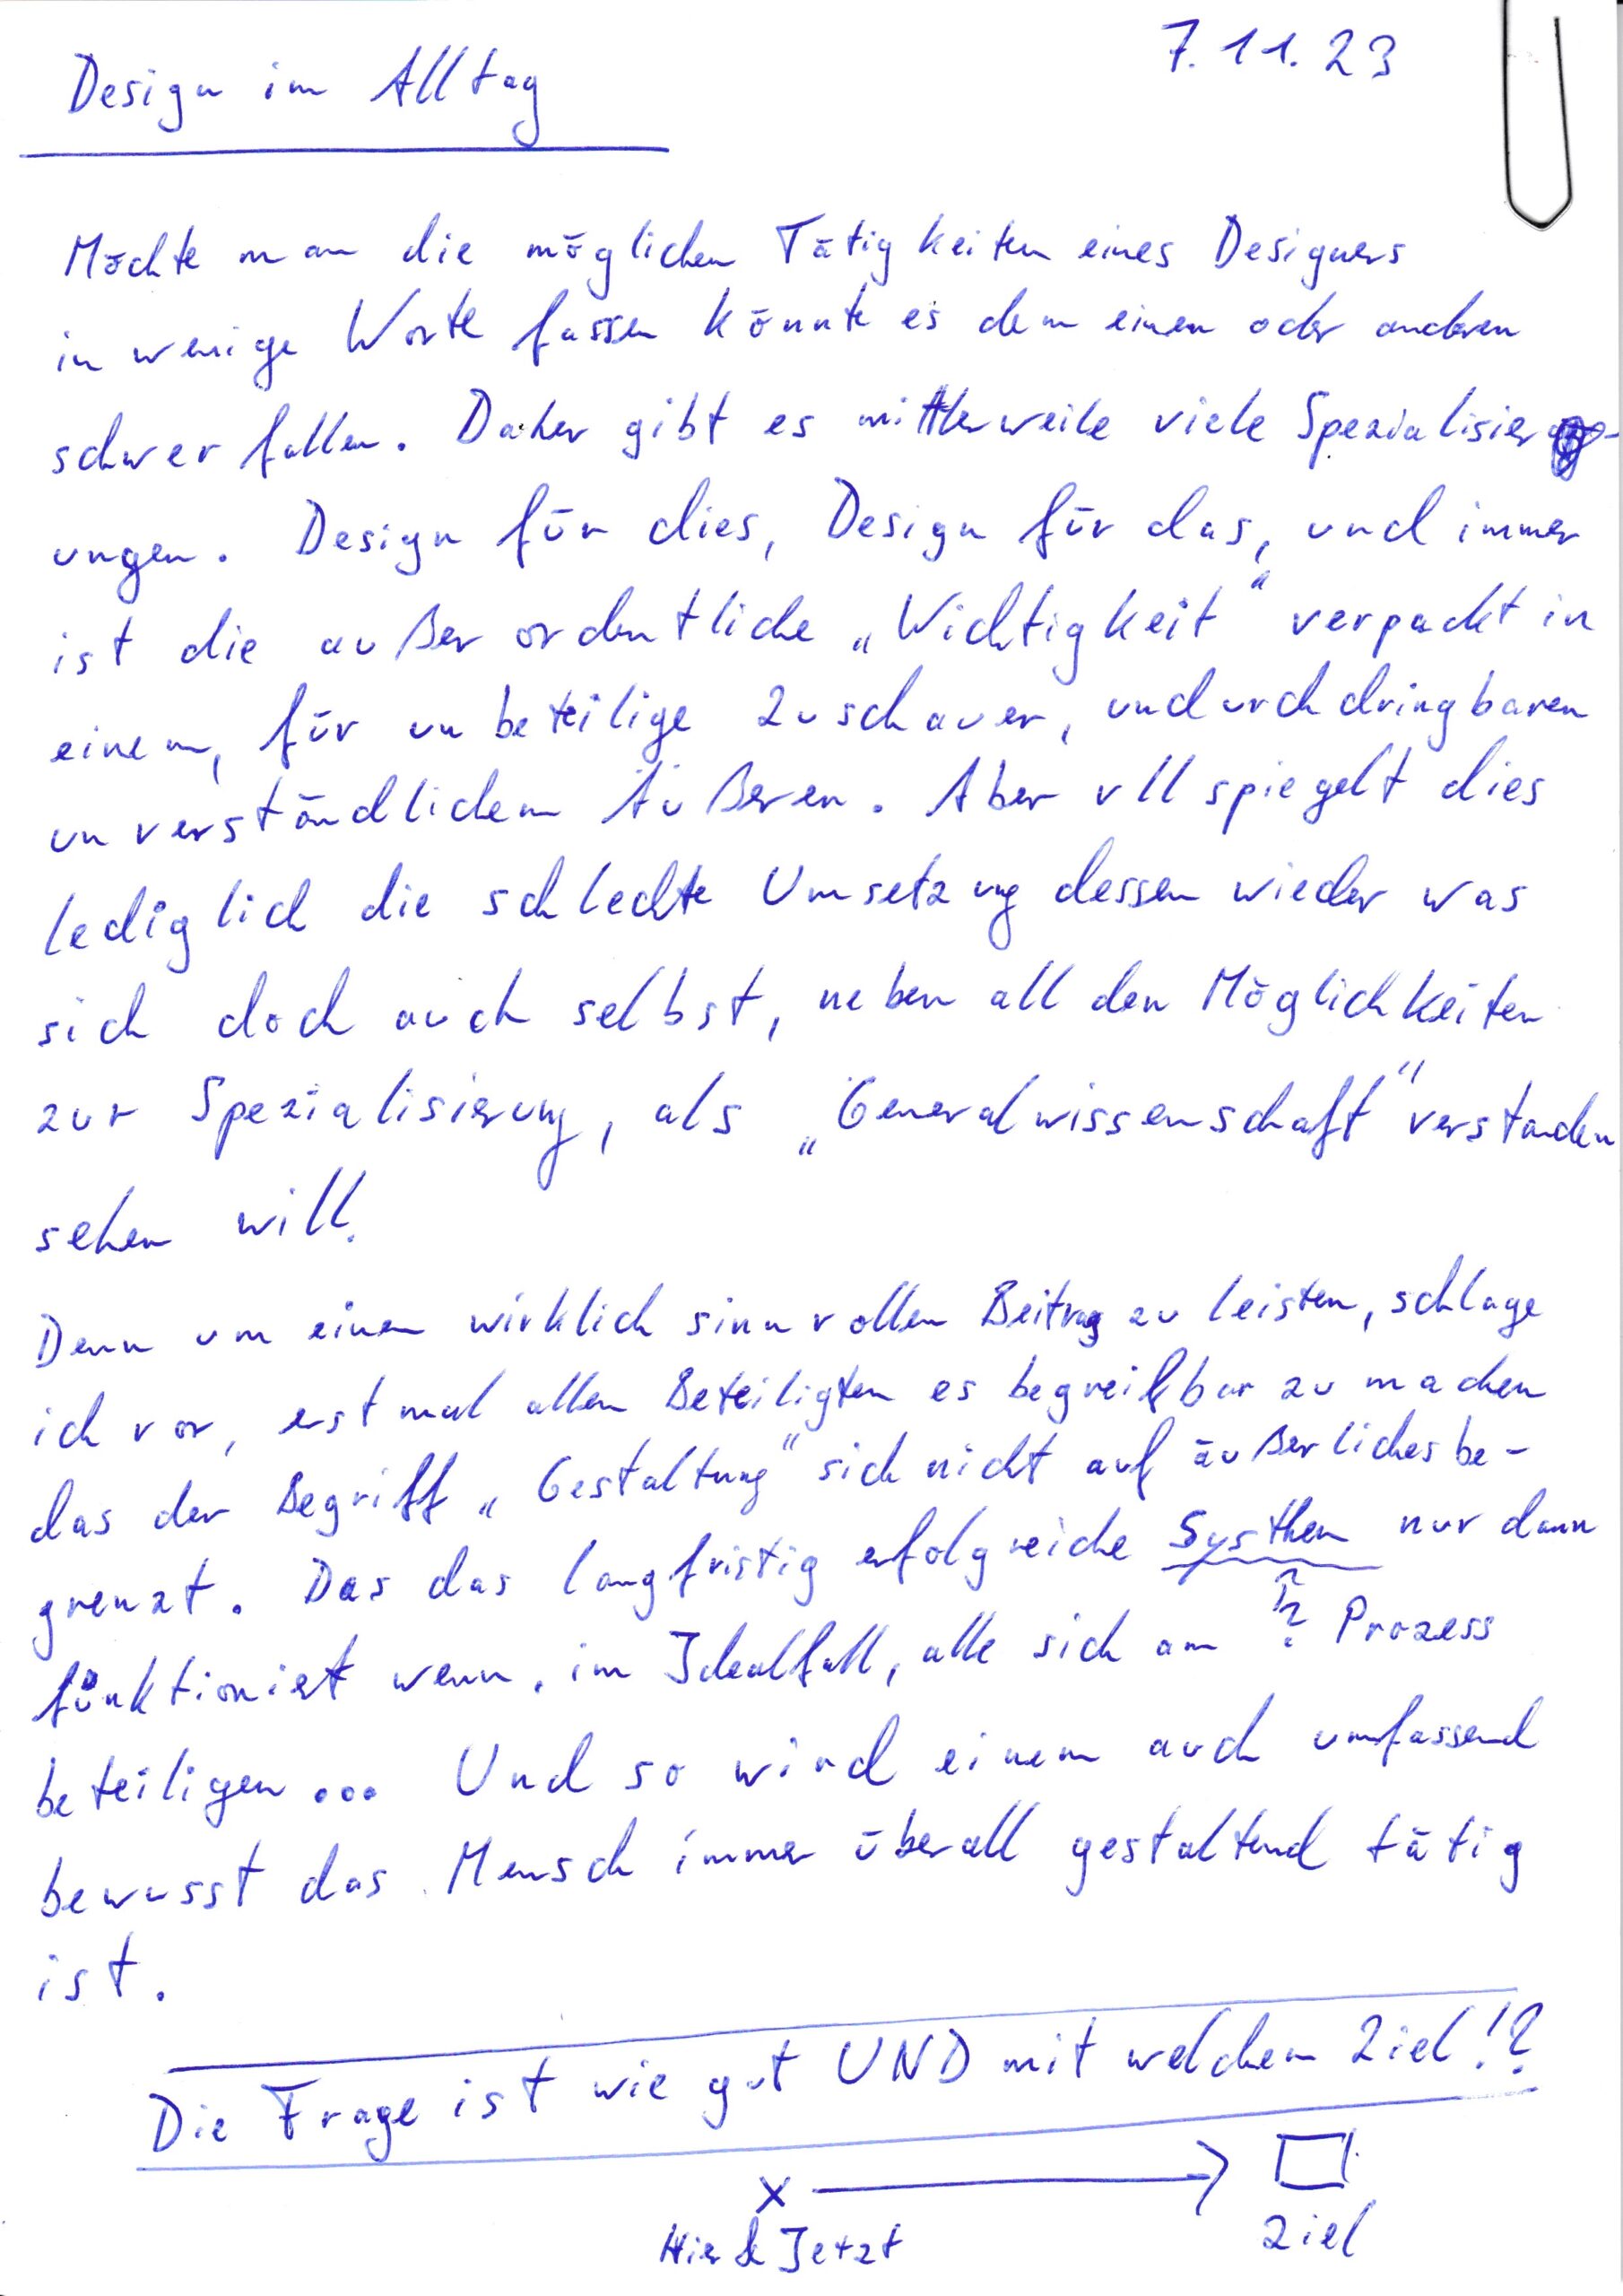 7.11.23
Design im Alltag
Möchte man die möglichen Tätigkeiten eines Designers
in wenige Worte fassen könnte es dem einen oder anderen
schwer fallen. Daher gibt es mittlerweile viele Spezialisier-
ungen. Design für dies, Design für das, und immer
ist die außerordentliche „Wichtigkeit“ verpackt in
einem, für unbeteilige Zuschauer, undurchdringbaren
unverständlichem Äußeren. Aber vll spiegelt dies
lediglich die schlechte Umsetzung dessen wieder was
sich doch auch selbst, neben all den Möglichkeiten
zur Spezialisierung, als „Generalwissenschaft“ verstanden
sehen will.
Denn um einen wirklich sinnvollen Beitrag zu leisten, schlage
ich vor, erstmal allen Beteiligten es begreifbar zu machen
das der Begriff „Gestaltung“ sich nicht auf äußerliches be-
grenzt. Das das langfristig erfolgreiche Systhem nur dann
h?
funktioniert wenn, im Idealfall, alle sich am Prozess
beteiligen... Und so wird einem auch umfassend
bewusst das Mensch immer überall gestaltend tätig
ist.
Die Frage ist wie gut UND mit welchem Ziel!?
x → 
Hier & Jetzt Ziel